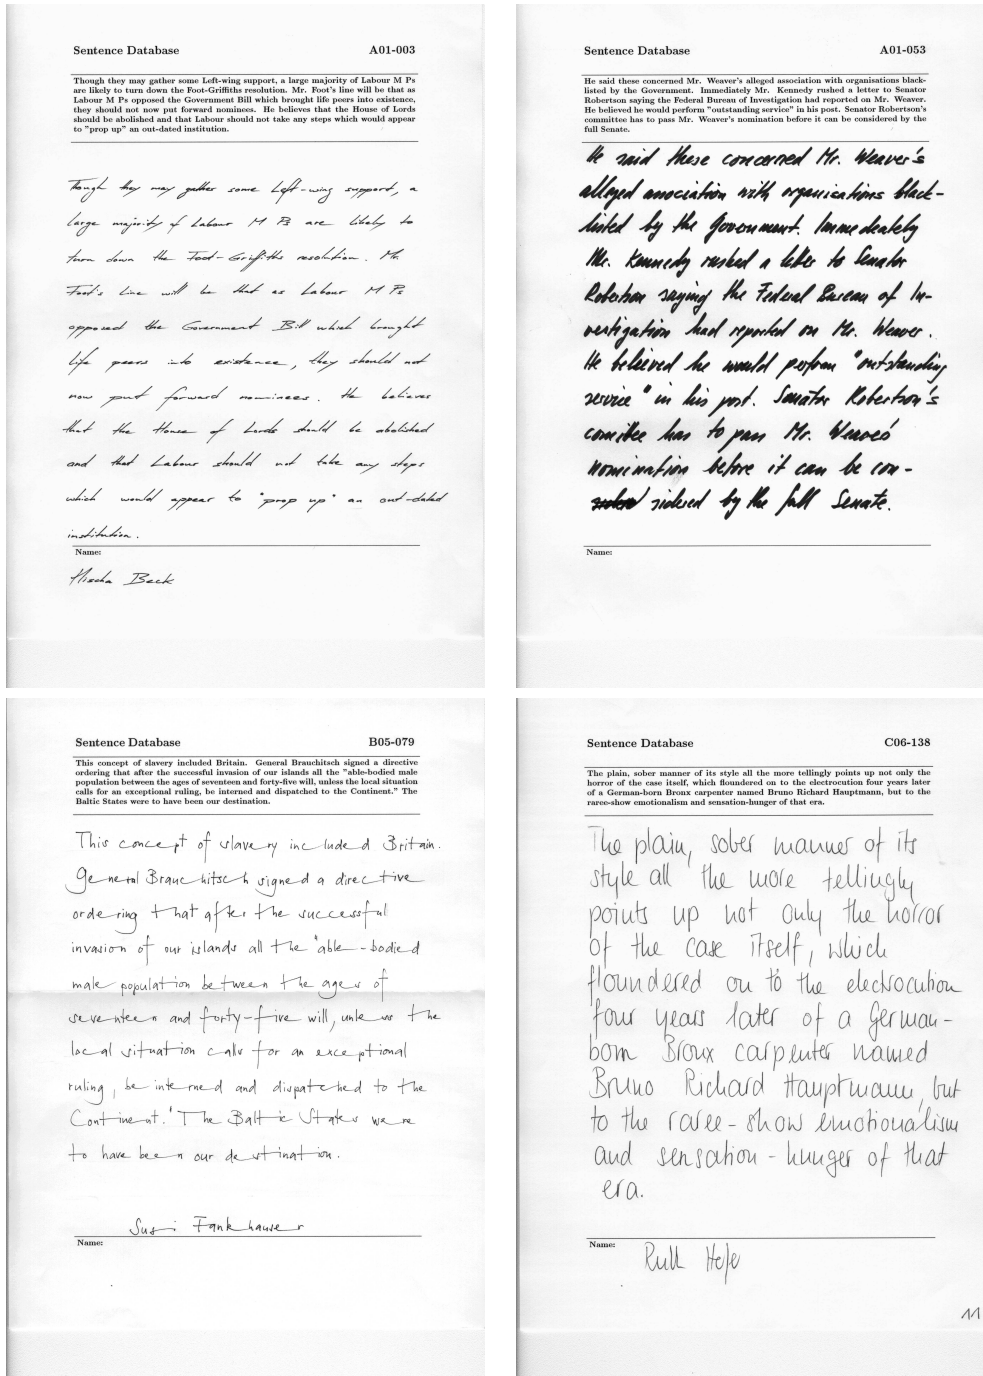 Sentence Database A01-003
Though they may gather some Left-wing support, a large majority of Labour M Ps
are likely to turn down the Foot-Griffiths resolution. Mr. Foot's line will be that as
Labour M Ps opposed the Government Bill which brought life peers into existence,
they should not now put forward nominees. He believes that the House of Lords
should be abolished and that Labour should not take any steps which would appear
to "prop up" an out-dated institution.
Though they may gather some Left-wing support, a
large majority of Labour M Ps are likely to
turn down the Foot-Griffiths resolution. Mr.
Foot's line will be that as Labour M Ps
opposed the Government Bill which brought
life peers into existence, they should not
now put forward nominees. He believes
that the House of Lords should be abolished
and that Labour should not take any steps
which would appear to "prop up" an out-dated
institution.
Name:
Mischa Beck
Sentence Database A01-053
He said these concerned Mr. Weaver's alleged association with organisations black-
listed by the Government. Immediately Mr. Kennedy rushed a letter to Senator
Robertson saying the Federal Bureau of Investigation had reported on Mr. Weaver.
He believed he would perform "outstanding service" in his post. Senator Robertson's
committee has to pass Mr. Weaver's nomination before it can be considered by the
full Senate.
He said these concerned Mr. Weaver's
alleged association with organisations black-
listed by the Government. Immedeately
Mr. Kennedy rushed a letter to Senator
Robertson saying the Federal Bureau of In-
vestigation had reported on Mr. Weaver.
He believed he would perform "outstanding
service" in his post. Senator Robertson's
comittee has to pass Mr. Weaver's
nomination before it can be con-
sidered by the full Senate.
Name:
Sentence Database B05-079
This concept of slavery included Britain. General Brauchitsch signed a directive
ordering that after the successful invasion of our islands all the "able-bodied male
population between the ages of seventeen and forty-five will, unless the local situation
calls for an exceptional ruling, be interned and dispatched to the Continent." The
Baltic States were to have been our destination.
This concept of slavery included Britain.
General Brauchitsch signed a directive
ordering that after the successful
invasion of our islands all the "able-bodied
male population between the ages of
seventeen and forty-five will, unless the
local situation calls for an exceptional
ruling, be interned and dispatched to the
Continent." The Baltic States were
to have been our destination.
Susi Fankhauser
Name:
Sentence Database C06-138
The plain, sober manner of its style all the more tellingly points up not only the
horror of the case itself, which floundered on to the electrocution four years later
of a German-born Bronx carpenter named Bruno Richard Hauptmann, but to the
raree-show emotionalism and sensation-hunger of that era.
The plain, sober manner of its
style all the more tellingly
points up not only the horror
of the case itself, which
floundered on to the electrocution
four years later of a German-
born Bronx carpenter named
Bruno Richard Hauptmann, but
to the raree-show emotionalism
and sensation-hunger of that
era.
Name:
11